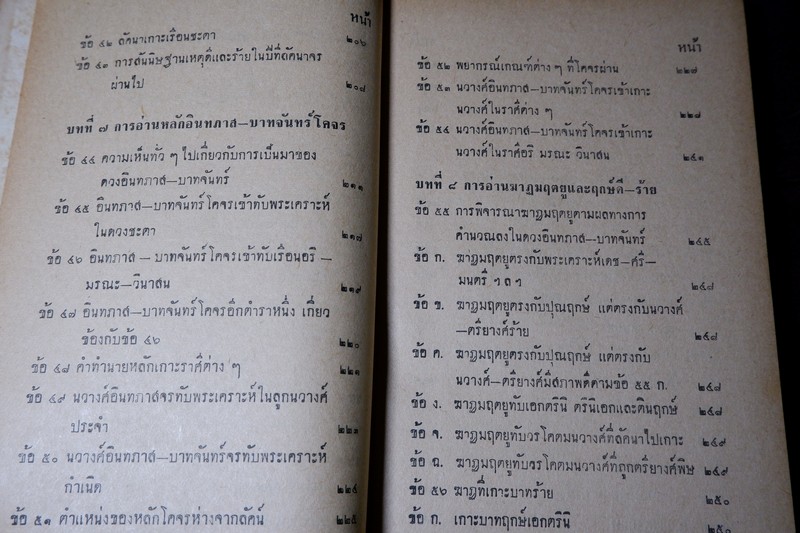 หน้า
ข้อ ๔๒ ลัคนาเกาะเรือนชะตา ๒๐๖
ข้อ ๔๓ การสันนิษฐานเหตุดีและร้ายในปีที่ลัคนาจร
ผ่านไป ๒๐๘
บทที่ ๗ การอ่านหลักอินทภาส—บาทจันทร์โคจร
ข้อ ๔๔ ความเห็นทั่ว ๆ ไปเกี่ยวกับการเป็นมาของ
ดวงอินทภาส—บาทจันทร์ ๒๑๑
ข้อ ๔๕ อินทภาส—บาทจันทร์โคจรเข้าทับพระเคราะห์
ในดวงชะตา ๒๑๗
ข้อ ๔๖ อินทภาส — บาทจันทร์โคจรเข้าทับเรือนอริ —
มรณะ—วินาสน ๒๑๙
ข้อ ๔๗ อินทภาส—บาทจันทร์โคจรอีกตำราหนึ่ง เกี่ยว
ข้องกับข้อ ๔๖ ๒๒๐
ข้อ ๔๘ คำทำนายหลักเกาะราศีต่าง ๆ ๒๒๑
ข้อ ๔๙ นวางค์อินทภาสจรทับพระเคราะห์ในลูกนวางค์
ประจำ ๒๒๓
ข้อ ๕๐ นวางค์อินทภาส—บาทจันทร์จรทับพระเคราะห์
กำเนิด ๒๒๔
ข้อ ๕๑ ตำแหน่งของหลักโคจรห่างจากลัคน์ ๒๒๕
หน้า
ข้อ ๕๒ พยากรณ์เกณฑ์ต่าง ๆ ที่โคจรผ่าน ๒๒๗
ข้อ ๕๓ นวางค์อินทภาส—บาทจันทร์โคจรเข้าเกาะ
นวางค์ในราศีต่าง ๆ ๒๒๘
ข้อ ๕๔ นวางค์อินทภาส—บาทจันทร์โคจรเข้าเกาะ
นวางค์ในราศีอริ มรณะ วินาสน ๒๔๑
บทที่ ๘ การอ่านฆาฏมฤตยูและฤกษ์ดี—ร้าย
ข้อ ๕๕ การพิจารณาฆาฏมฤตยูตามผลทางการ
คำนวณลงในดวงอินทภาส—บาทจันทร์ ๒๔๕
ข้อ ก. ฆาฏมฤตยูตรงกับพระเคราะห์เดช—ศรี—
มนตรี ฯลฯ ๒๔๘
ข้อ ข. ฆาฏมฤตยูตรงกับปุณฤกษ์ แต่ตรงกับนวางค์
—ตรียางค์ร้าย ๒๔๘
ข้อ ค. ฆาฏมฤตยูตรงกับปุณฤกษ์ แต่ตรงกับ
นวางค์—ตรียางค์มีสภาพดีตามข้อ ๕๕ ก. ๒๔๘
ข้อ ง. ฆาฏมฤตยูทับเอกตรินิ ตรินิเอกและตินฤกษ์ ๒๔๘
ข้อ จ. ฆาฏมฤตยูทับวรโคตมนวางค์ที่ลัคนาไปเกาะ ๒๔๙
ข้อ ฉ. ฆาฏมฤตยูทับวรโคตมนวางค์ที่ถูกตรียางค์พิษ ๒๔๙
ข้อ ๕๖ ฆาฏที่เกาะบาทร้าย ๒๕๐
ข้อ ก. เกาะบาทฤกษ์เอกตรินิ ๒๕๐